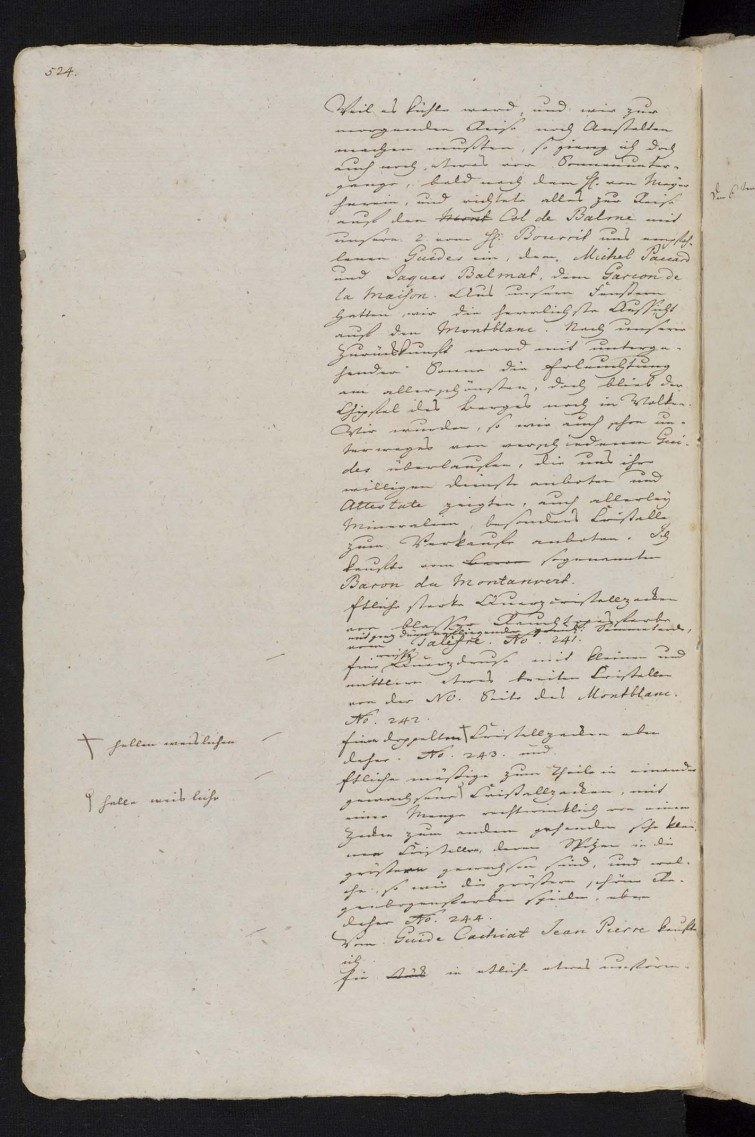 524.
Weil es kühle ward, und wir zur
morgenden Reise noch Anstalten
machen mußten, so gieng ich doch
auch noch etwas vor Sonnenunter-
gange, bald nach dem H. von Meyer
herein, und richtete alles zur Reise
auf den Mont Col de Balme mit
unsern 2 vom H. Bourrit uns empfoh-
lenen Guides ein, dem Michel Paccard
und Jaques Balmat, dem Garcon de
la Maison. Aus unsern Fenstern
hatten wir die herrlichste Aussicht
auf den Montblanc. Nach unserer
Zurückkunft ward mit unterge-
hender Sonne die Erleuchtung
am allerschönsten, doch blieb der
Gipfel des Berges noch in Wolken.
Wir wurden, so wie auch schon un-
terweges von verschiedenen Gui-
des überlaufen, die uns ihre
willigen Dienste anboten und
Attestate zeigten, auch allerley
Mineralien, besonders Cristalle
zum Verkaufe anboten. Ich
kaufte vom Baron sogenannten
Baron du Montanvert.
Etliche starke Quarzcristallzacken
von blasser Rauchtopasfarbe
vom Talefre. No. 241.
Eine weiße Quarzdruse mit kleinen und
mittlern etwas breiten Cristallen
von der NO. Seite des Montblanc.
No. 242.
Einen doppelten † Cristallzacken eben
daher. No. 243. und
† hellen weislichen
Etliche mäßige zum Theile in einander
gewachsene Cristallzacken, mit
helle weisliche
einer Menge rechtwinklich von einem
Zacken zum andern gehenden sehr klei-
nen Cristallen, deren Spitzen in die
größern gewachsen sind, und wel-
che so wie die größern, schöne Re-
genbogenfarben spielen, eben
daher No. 244.
Vom Guide Cachiat Jean Pierre kaufte
ich
Ein in etliche etwas unförm-